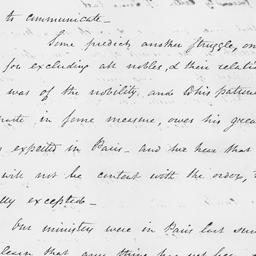 to communicate_
Some predict another struggle, on
for excluding all nobles, & their relati
was of the nobility. and this
in some measure, owes his grea
expected in Paris _ and we hear that
will not be content with the order,
excepted _
Our ministers were in Paris last
learn that any thing has not